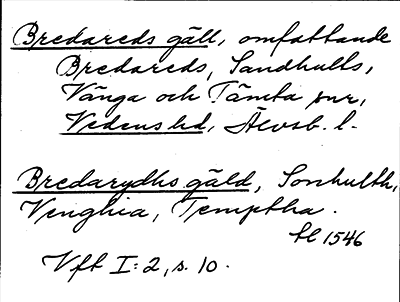 Bredareds gäll, omfattande
Bredareds, Sandhults,
Vänga och Tämta snr,
Vedens hd, Älvsb. l.
Bredarydhs gäld, Sonhulth,
Venghia, Temptha.
tl 1546
Vft I:2, s. 10.